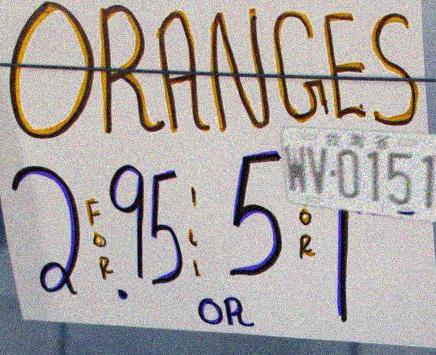 ORANGES
2 FOR .95 ¦ 5 FOR 1
WV·0151
OR